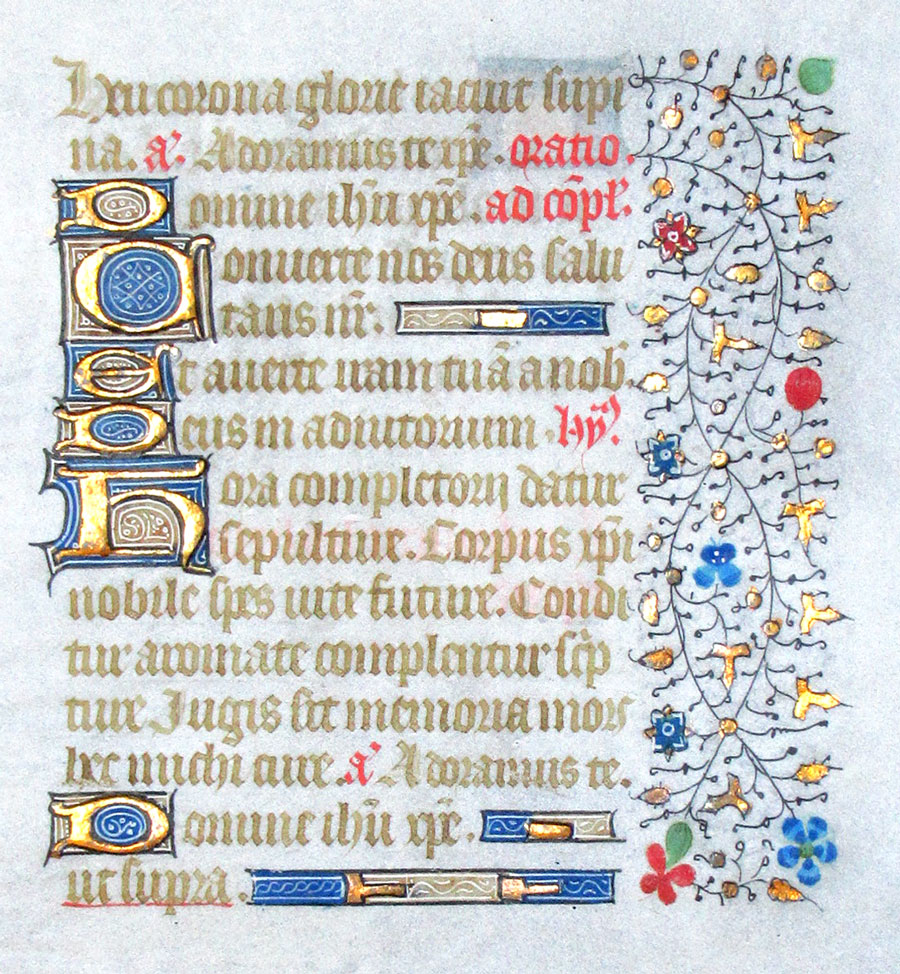 Heu corona glorie iacuit supi
na. a̾. Adoramus te xp̄e. oratio.
Domine ih̄u xp̄e. ad cōpl̾.
Conuerte nos deus salu
taris nr̄.
Et auerte iram tuā a nob̾.
Deus in adiutorium. hȳ̾.
Hora completorij datur
sepulture. Corpus xp̄i
nobile spes uite future. Condi
tur aromate complentur sc̾p
ture Jugis sit memoria mor
hec michi cure. a̾ Adoramus te.
Domine ih̄u xp̄e.
ut supra.